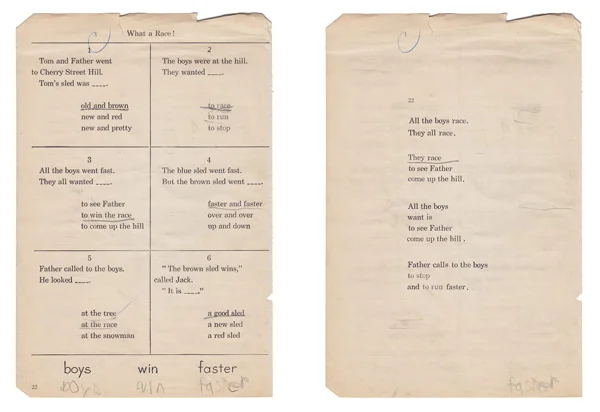 What a Race!
1
Tom and Father went
to Cherry Street Hill.
Tom's sled was ____.
old and brown
new and red
new and pretty
2
The boys were at the hill.
They wanted ____.
to race
to run
to stop
3
All the boys went fast.
They all wanted ____.
to see Father
to win the race
to come up the hill
4
The blue sled went fast.
But the brown sled went ____.
faster and faster
over and over
up and down
5
Father called to the boys.
He looked ____.
at the tree
at the race
at the snowman
6
"The brown sled wins,"
called Jack.
"It is ____."
a good sled
a new sled
a red sled
boys win faster
boys win faster
22
22
All the boys race.
They all race.
They race
to see Father
come up the hill.
All the boys
want is
to see Father
come up the hill.
Father calls to the boys
to stop
and to run faster.
faster